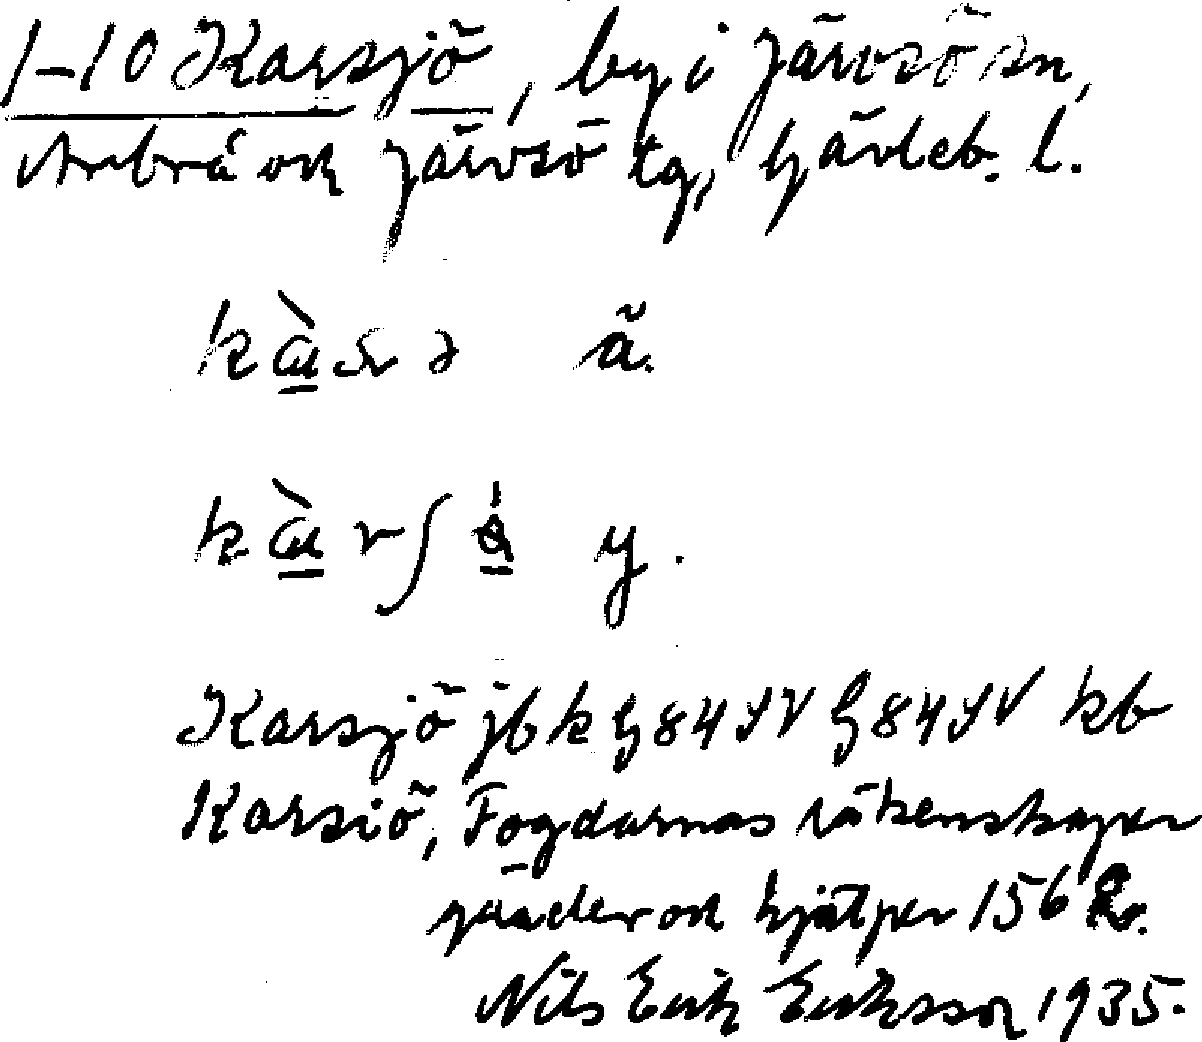 1-10 Karsjö, by i Järvsö sn,
Arbrå och Järvsö tg, Gävleb. l.
ä.
y.
Karsjö jbk G 84 IV G 84 IV kb
Karsiö, Fogdarnas räkenskaper
gärder och hjälper 156
Nils Erik Eriksson 1935.